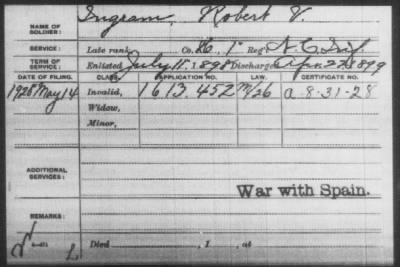 NAME OF SOLDIER: Ingram, Robert V.
SERVICE: Late rank, Co. K, 1" Reg't N.C. Inf.
TERM OF SERVICE: Enlisted July 11, 1898 Discharged Apr. 22, 1899
DATE OF FILING. CLASS. APPLICATION NO. LAW. CERTIFICATE NO.
1928 May 14 Invalid, 1613.452 a-8-31-28
Widow,
Minor,
ADDITIONAL SERVICES:
War with Spain.
REMARKS:
Died , 1 , at